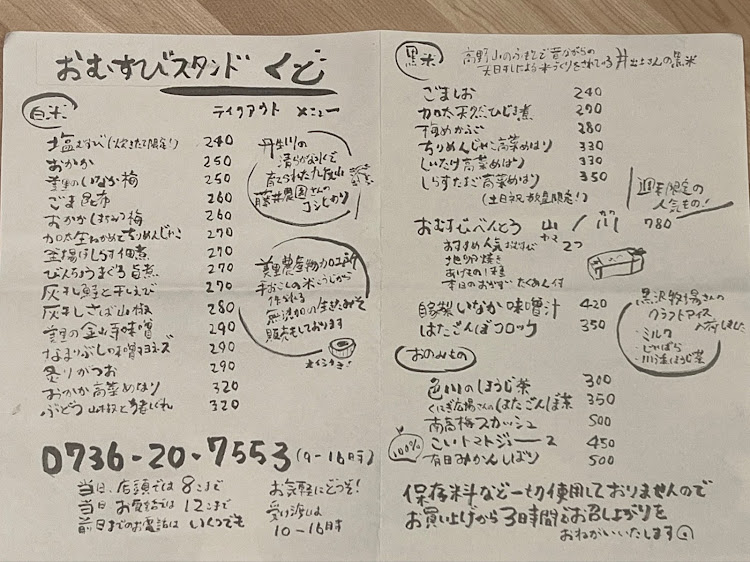 おむすびスタンド くど
テイクアウト メニュー
白米
塩むすび(炊きたて限定!) 240
おかか 250
美里のいなか梅 250
ごま昆布 260
おかかはちみつ梅 260
加太生わかめとちりめんじゃこ 270
釜揚げしらす佃煮 270
びんちょうまぐろ旨煮 270
灰干し鮭と干しえび 270
灰干しさば山椒 280
美里の金山寺味噌 290
なまりぶしの味噌マヨネーズ 290
炙りがつお 290
おかか高菜めはり 320
ぶどう山椒と牛しぐれ 320
丹生川の
清らかな
育てられた九度山
藤井農園さんの
コシヒカリ
美里農産物加工所
手おこしの米こうじから
作られる
無添加の生きたみそ
販売もしております
0736-20-7553(9-16時)
当日、店頭では 8こまで
当日 お電話では 12こまで
前日までのお電話は いくつでも
お気軽にどうぞ!
受け渡しは
10-16時
黒米
高野山のふもとで昔ながらの
天日干しによる米づくりをされている 井出上さんの黒米
ごましお 240
加太天然ひじき煮 270
梅めかぶ 280
ちりめんじゃこ高菜めはり 330
しいたけ高菜めはり 330
しらすたまご高菜めはり 350
(土日祝 数量限定!)
週末限定の
人気もの!
おむすびべんとう 山/川 780
おすすめ人気おむすび 2つ
地卵焼き
あげもの1種
本日のおかず たくあん付
自家製いなか味噌汁 420
はたごんぼコロッケ 350
黒沢牧場さんの
クラフトアイス
入荷しました
・ミルク
・じゃばら
・川添ほうじ茶
おのみもの
色川のほうじ茶 300
くにぎ広場さんのはたごんぼ茶 350
南高梅スカッシュ 500
100% こいトマトジュース 450
有田みかんしぼり 500
保存料など一切使用しておりませんので
お買い上げから3時間でお召し上がりを
おねがいいたします